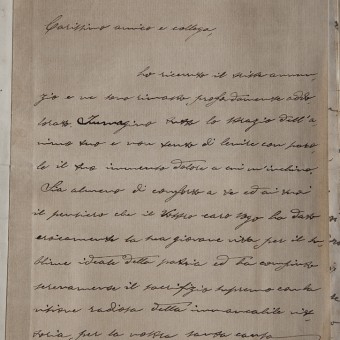 Carissimo amico e collega,
ho ricevuto il triste annun-
zio e ne sono rimasto profondamente addo-
lorato. Immagino tutto lo strazio dell'a
nimo tuo e non tento di lenire con paro
le il tuo immenso dolore a cui m'inchino.
Sia almeno di conforto a te ed ai tuoi
il pensiero che il vostro caro Ugo ha dato
eroicamente la sua giovane vita per il su
blime ideale della patria ed ha compiuto
serenamente il sacrifizio supremo con la
visione radiosa della immancabile vit-
toria, per la nostra santa causa